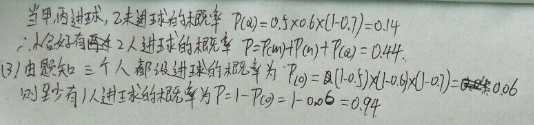 当甲、丙进球,乙未进球的概率 P(a)=0.5×0.6×(1-0.7)=0.14
∴恰好有两 2人进球的概率 P=P(m)+P(n)+P(a)=0.44.
(3)由题知 三个人都没进球的概率为 P(o)=(1-0.5)×(1-0.6)×(1-0.7)=0.06
则至少有1人进球的概率为P=1-P(o)=1-0.06=0.94